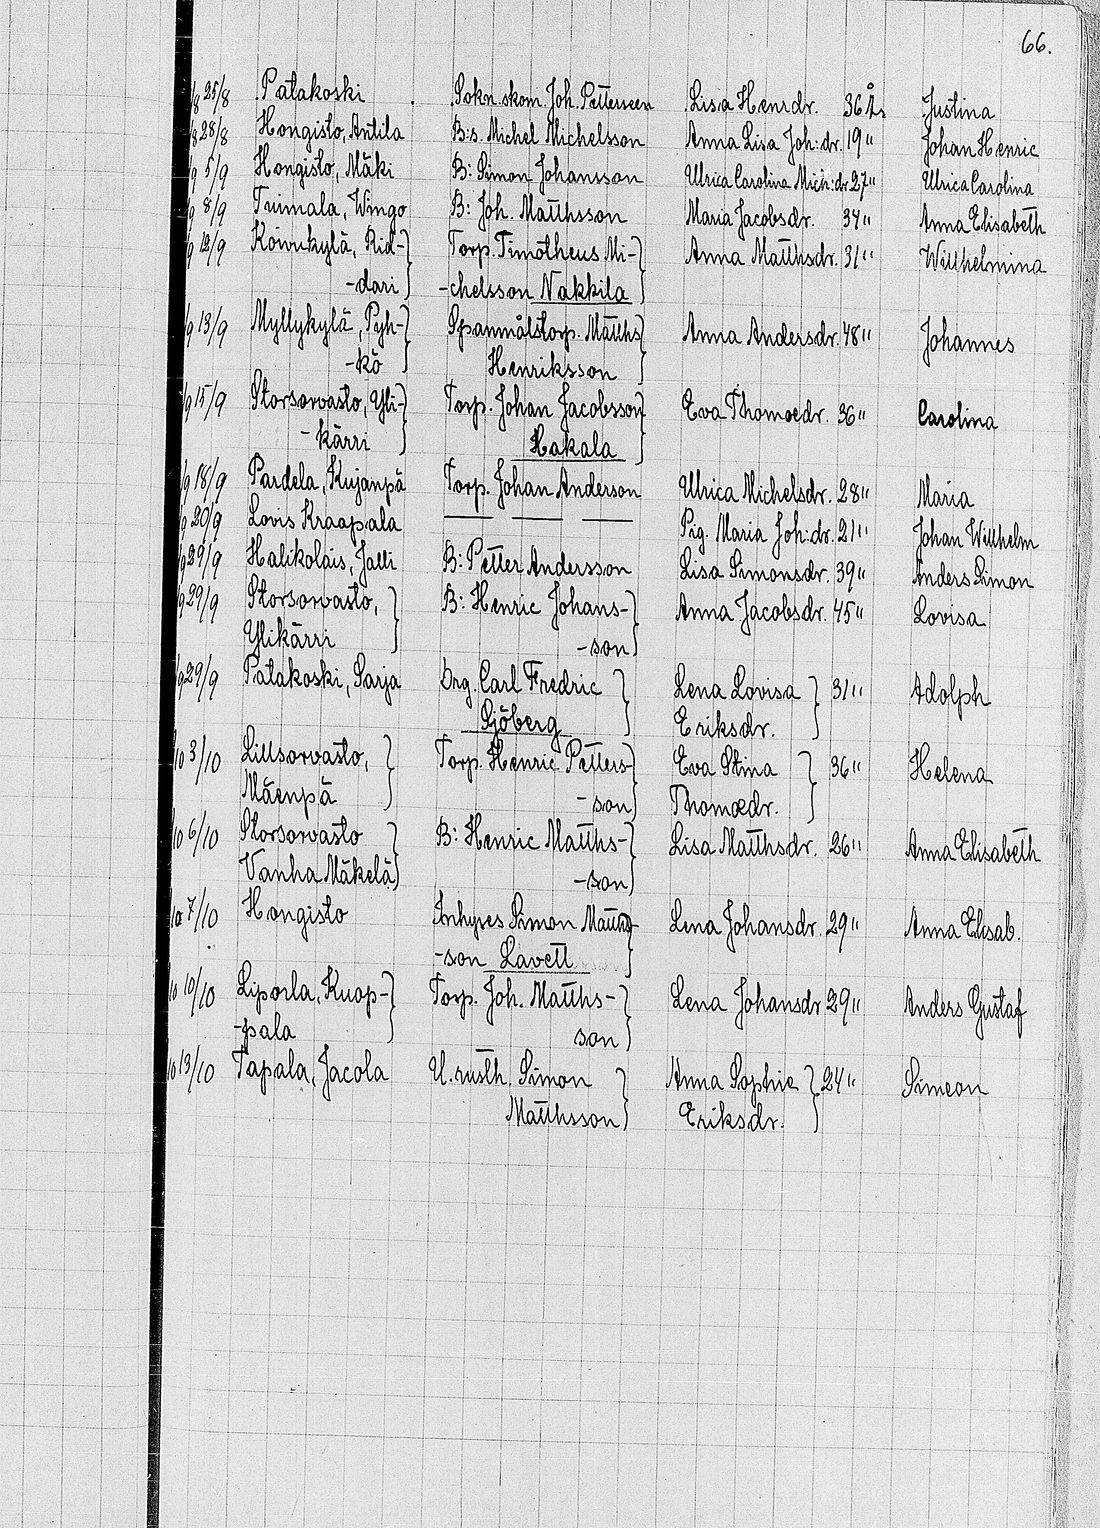 66.
/8 25/8 Patakoski Sokn.skom. Joh. Petterseen Lisa Henrdr. 36 Års Justina
/8 28/8 Hongisto, Antila B:s. Michel Michelsson Anna Lisa Joh:dr. 19" Johan Henric
/9 5/9 Hongisto, Mäki B: Simon Johansson Ulrica Carolina Mich:dr 27" Ulrica Carolina
/9 8/9 Tuimala, Wingo B: Joh. Matthsson Maria Jacobsdr. 34" Anna Elisabeth
/9 12/9 Koivukylä, Rid- Torp. Timotheus Mi- Anna Matthsdr. 31" Willhelmina
-dari -chelsson Nakkila
/9 13/9 Myllykylä, Pyh- Spanmålstorp. Matths Anna Andersdr. 48" Johannes
-kö Henriksson
/9 15/9 Storsorvasto, Yli- Torp. Johan Jacobsson Eva Thomædr. 36" Carolina
-kärri Hakala
/9 18/9 Pardela, Kujanpä Torp. Johan Anderson Ulrica Michelsdr. 28" Maria
/9 20/9 Lovis Kraapala — — — Pig. Maria Joh:dr. 21" Johan Willhelm
/9 29/9 Halikolais, Jalli B: Petter Andersson Lisa Simonsdr. 39" Anders Simon
/9 29/9 Storsorvasto, B: Henric Johans- Anna Jacobsdr. 45" Lovisa
Ylikärri -son
/9 29/9 Patakoski, Sarja Drg. Carl Fredric Lena Lovisa 31" Adolph
Sjöberg Eriksdr.
/10 3/10 Lillsorvasto, Torp. Henric Petters- Eva Stina 36" Helena
Mäenpä -son Thomædr.
/10 6/10 Storsorvasto B: Henric Matths- Lisa Matthsdr. 26" Anna Elisabeth
Vanha Mäkelä -son
/10 7/10 Hongisto Inhyses Simon Matths- Lena Johansdr. 29" Anna Elisab.
-son Lavett
/10 10/10 Liporla, Kuop- Torp. Joh. Matths- Lena Johansdr 29" Anders Gustaf
-pala son
/10 13/10 Tapala, Jacola U. rusth. Simon Anna Sophie 24" Simeon
Matthsson Eriksdr.